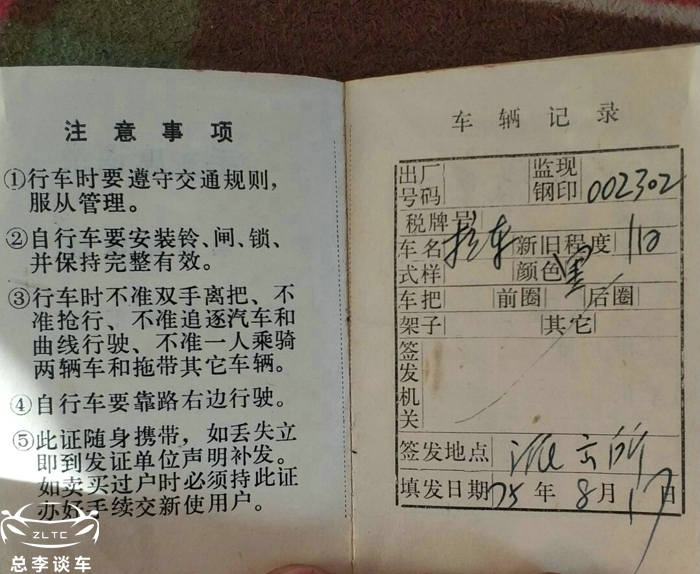 注意事项
①行车时要遵守交通规则,
服从管理。
②自行车要安装铃、闸、锁、
并保持完整有效。
③行车时不准双手离把、不
准抢行、不准追逐汽车和
曲线行驶、不准一人乘骑
两辆车和拖带其它车辆。
④自行车要靠路右边行驶。
⑤此证随身携带，如丢失立
即到发证单位声明补发。
如卖买过户时必须持此证
办好手续交新使用户。
ZLTC
总李谈车
车辆记录
出厂号码 监现钢印 002302
税牌号
车名 新旧程度
式样 颜色 黑
车把 前圈 后圈
架子 其它
签发机关
签发地点
填发日期 75年8月17日